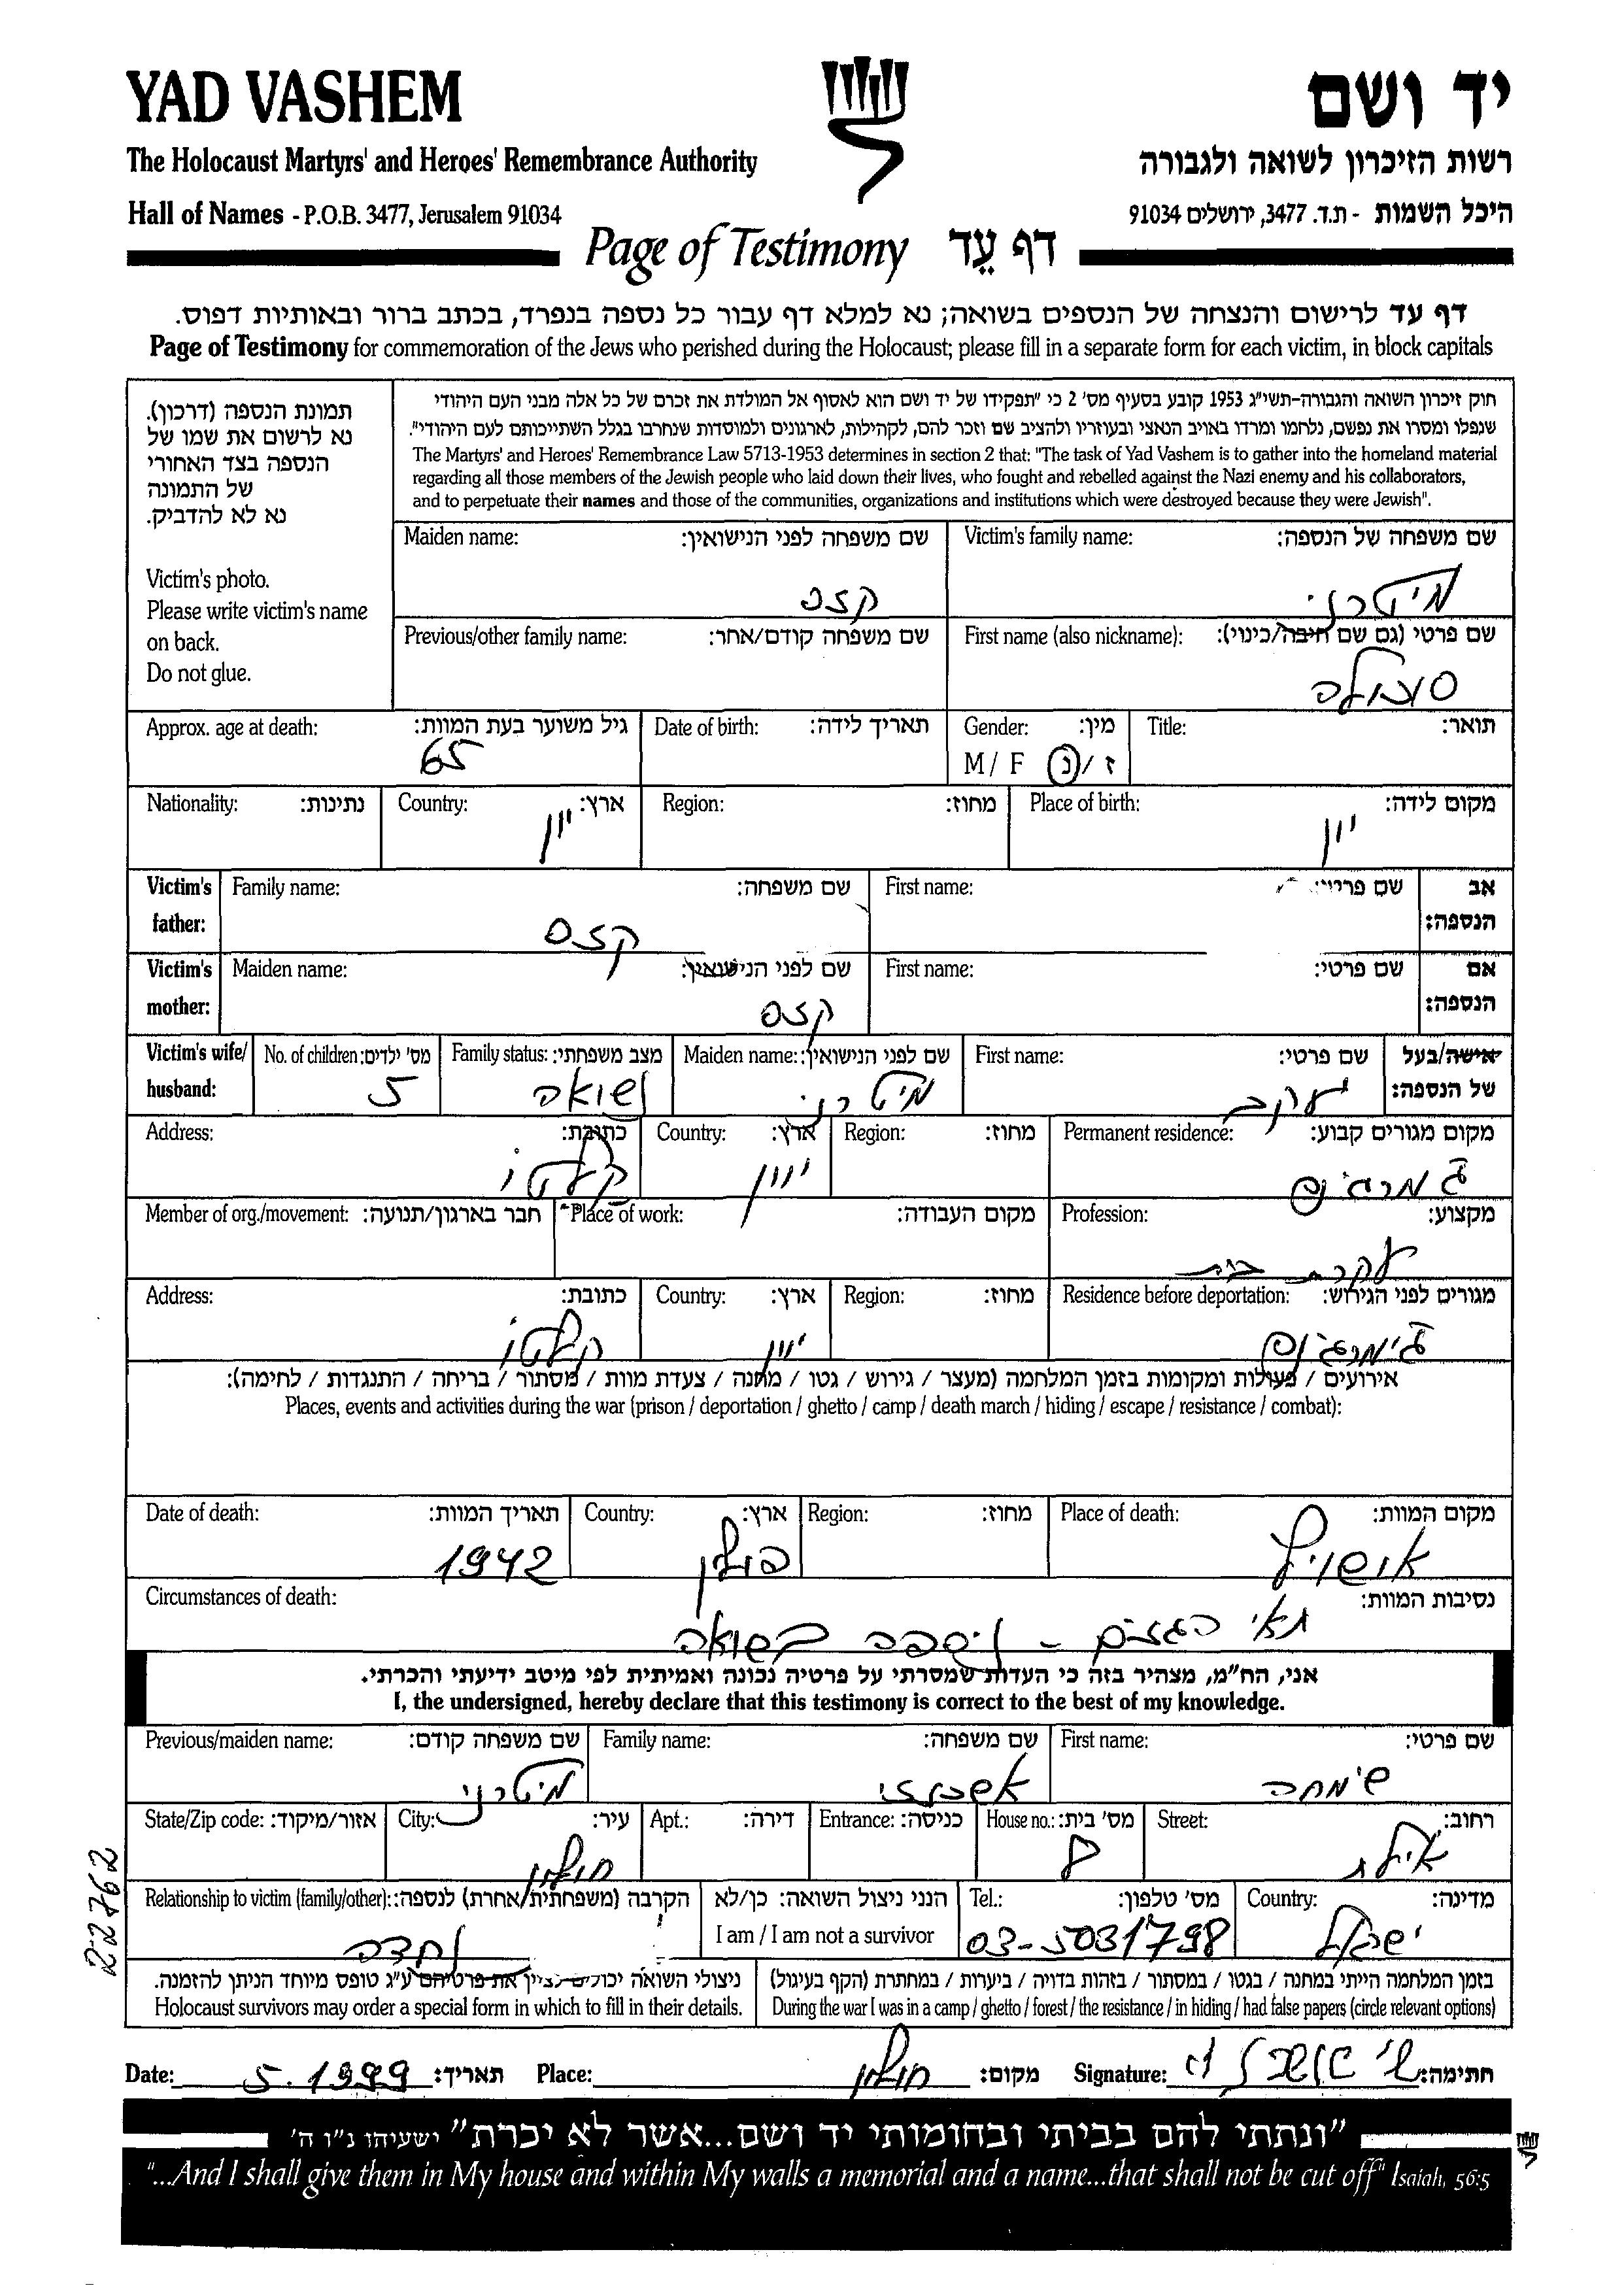 YAD VASHEM
יד ושם
The Holocaust Martyrs' and Heroes' Remembrance Authority
רשות הזיכרון לשואה ולגבורה
Hall of Names - P.O.B. 3477, Jerusalem 91034
היכל השמות - ת.ד. 3477, ירושלים 91034
Page of Testimony דף עֵד
דף עד לרישום והנצחה של הנספים בשואה; נא למלא דף עבור כל נספה בנפרד, בכתב ברור ובאותיות דפוס.
Page of Testimony for commemoration of the Jews who perished during the Holocaust; please fill in a separate form for each victim, in block capitals
תמונת הנספה (דרכון).
נא לרשום את שמו של
הנספה בצד האחורי
של התמונה
נא לא להדביק.
Victim's photo.
Please write victim's name
on back.
Do not glue.
חוק זיכרון השואה והגבורה-תשי"ג 1953 קובע בסעיף מס' 2 כי "תפקידו של יד ושם הוא לאסוף אל המולדת את זכרם של כל אלה מבני העם היהודי
שנפלו ומסרו את נפשם, נלחמו ומרדו באויב הנאצי ובעוזריו ולהציב שם וזכר להם, לקהילות, לארגונים ולמוסדות שנחרבו בגלל השתייכותם לעם היהודי".
The Martyrs' and Heroes' Remembrance Law 5713-1953 determines in section 2 that: "The task of Yad Vashem is to gather into the homeland material
regarding all those members of the Jewish people who laid down their lives, who fought and rebelled against the Nazi enemy and his collaborators,
and to perpetuate their names and those of the communities, organizations and institutions which were destroyed because they were Jewish".
Victim's family name: שם משפחה של הנספה:
מיטרני
Maiden name: שם משפחה לפני הנישואין:
קזס
First name (also nickname): שם פרטי (גם שם חיבה/כינוי):
Previous/other family name: שם משפחה קודם/אחר:
Title: תואר:
Gender: מין:
M / F ז / נ
Date of birth: תאריך לידה:
Approx. age at death: גיל משוער בעת המוות:
65
Place of birth: מקום לידה:
יון
Region: מחוז:
Country: ארץ:
יון
Nationality: נתינות:
אב הנספה:
First name: שם פרטי:
Family name: שם משפחה:
קזס
Victim's father:
אם הנספה:
First name: שם פרטי:
Maiden name: שם לפני הנישואין:
קזס
Victim's mother:
אישה/בעל של הנספה:
First name: שם פרטי:
יעקב
Maiden name: שם לפני הנישואין:
מיטרני
Family status: מצב משפחתי:
נשואה
No. of children: מס' ילדים:
5
Victim's wife/ husband:
Permanent residence: מקום מגורים קבוע:
Region: מחוז:
Country: ארץ:
יוון
Address: כתובת:
Profession: מקצוע:
עקרת בית
Place of work: מקום העבודה:
Member of org./movement: חבר בארגון/תנועה:
Residence before deportation: מגורים לפני הגירוש:
Region: מחוז:
Country: ארץ:
יוון
Address: כתובת:
אירועים / פעולות ומקומות בזמן המלחמה (מעצר / גירוש / גטו / מחנה / צעדת מוות / מסתור / בריחה / התנגדות / לחימה):
Places, events and activities during the war (prison / deportation / ghetto / camp / death march / hiding / escape / resistance / combat):
Place of death: מקום המוות:
אושויץ
Region: מחוז:
Country: ארץ:
פולין
Date of death: תאריך המוות:
1942
Circumstances of death: נסיבות המוות:
תאי הגזים - נספה בשואה
אני, הח"מ, מצהיר בזה כי העדות שמסרתי על פרטיה נכונה ואמיתית לפי מיטב ידיעתי והכרתי.
I, the undersigned, hereby declare that this testimony is correct to the best of my knowledge.
First name: שם פרטי:
שימחה
Family name: שם משפחה:
אשכנזי
Previous/maiden name: שם משפחה קודם:
מיטרני
Street: רחוב:
אילת
House no.: מס' בית:
8
Entrance: כניסה:
Apt.: דירה:
City: עיר:
חולון
State/Zip code: אזור/מיקוד:
Country: מדינה:
ישראל
Tel.: מס' טלפון:
03-5031798
הנני ניצול השואה: כן/לא
I am / I am not a survivor
Relationship to victim (family/other): הקרבה (משפחתית/אחרת) לנספה:
נכדה
בזמן המלחמה הייתי במחנה / בגטו / במסתור / בזהות בדויה / ביערות / במחתרת (הקף בעיגול)
During the war I was in a camp / ghetto / forest / the resistance / in hiding / had false papers (circle relevant options)
ניצולי השואה יכולים לציין את פרטיהם ע"ג טופס מיוחד הניתן להזמנה.
Holocaust survivors may order a special form in which to fill in their details.
22762
Date: 5.1999 תאריך: Place: חולון מקום: Signature: חתימה:
"ונתתי להם בביתי ובחומותי יד ושם...אשר לא יכרת" ישעיהו נ"ו ה'
"...And I shall give them in My house and within My walls a memorial and a name...that shall not be cut off" Isaiah, 56:5